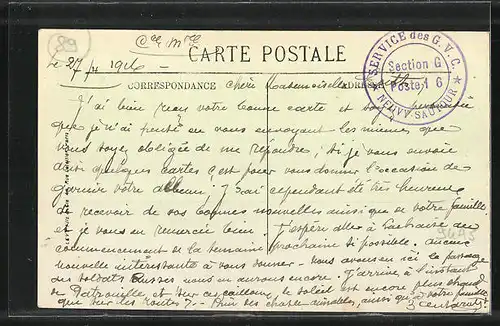 89
Cce Mre
CARTE POSTALE
Le 27/4 1916
CORRESPONDANCE
Chère Mademoiselle
ADRESSE
SERVICE des G. V. C.
Section G
Poste 1 6
NEUVY SAUTOUR
J'ai bien reçu votre bonne carte et
que je n'ai pensé en vous envoyant les miennes que
vous soyez obligée de me répondre; si je vous envoie
ainsi quelques cartes c'est pour vous donner l'occasion de
garnir votre album. J'ai cependant été très heureux
de recevoir de vos bonnes nouvelles ainsi que de votre famille
et je vous en remercie bien. J'espère aller à
commencement de la semaine prochaine si possible. aucune
nouvelle intéressante à vous donner. nous avons eu ici le passage
des soldats russes nous en aurons encore. J'arrive à l'instant
de Patrouille et sur le soleil est encore plus chaud
que sur les routes. des choses aimables, ainsi qu'à votre famille